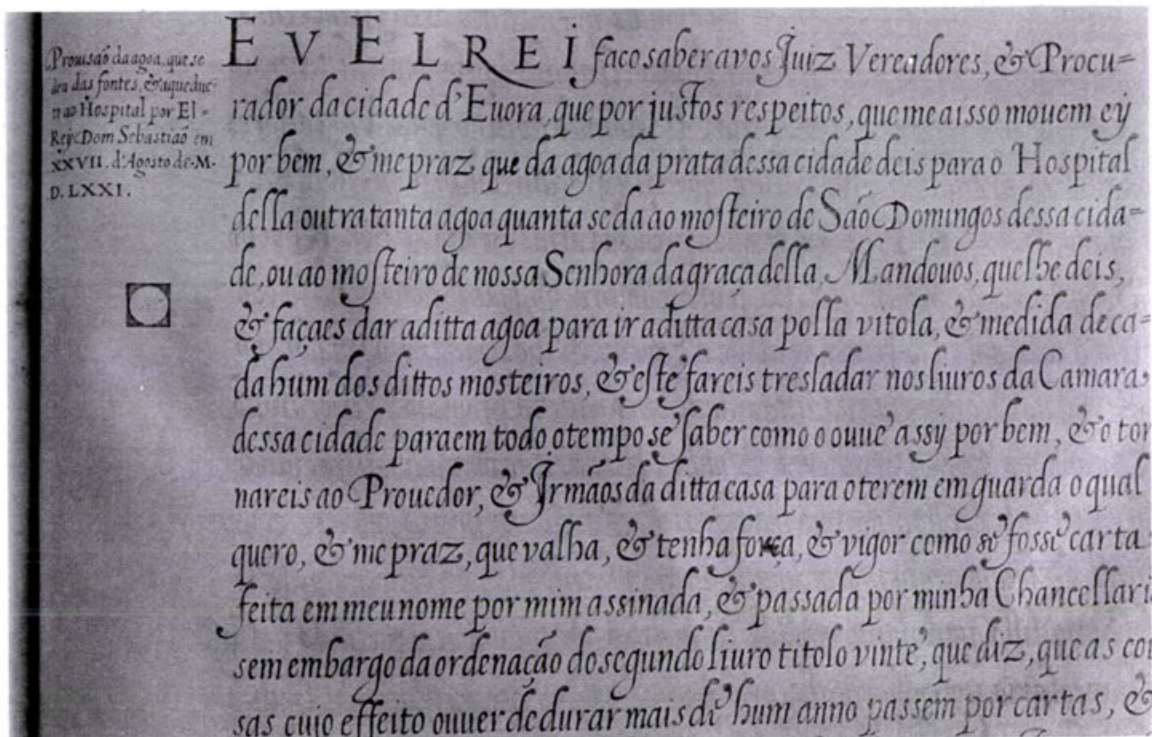 Prouisaõ da agoa, que se
deu das fontes, & aqueduc-
to ao Hospital por El-
Rey Dom Sebastiaõ em
XXVII. d'Agosto de M.
D. LXXI.
EV ELREI faco saber avos Juiz Vereadores, & Procu=
rador da cidade d'Euora, que por justos respeitos, que me a isso mouem ey
por bem, & me praz que da agoa da prata dessa cidade deis para o Hospital
della outra tanta agoa quanta se da ao mosteiro de Saõ Domingos dessa cida=
de, ou ao mosteiro de nossa Senhora da graça della, Mandouos, que lhe deis,
& façaes dar a ditta agoa para ir a ditta casa polla vitola, & medida de ca=
da hum dos dittos mosteiros, & este fareis tresladar nos liuros da Camara
dessa cidade para em todo o tempo se saber como o ouue assy por bem, & o tor
nareis ao Prouedor, & Irmãos da ditta casa para o terem em guarda o qual
quero, & me praz, que valha, & tenha força, & vigor como se fosse carta
feita em meu nome por mim assinada, & passada por minha Chancellari
sem embargo da ordenação do segundo liuro titolo vinte, que diz, que as cou
sas cujo effeito ouuer de durar mais de hum anno passem por cartas, &